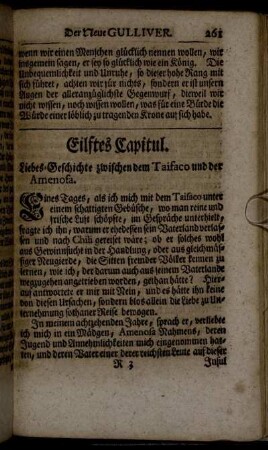 Der Neue GULLIVER. 261
wenn wir einen Menschen glücklich nennen wollen, wir
insgemein sagen, er sey so glücklich wie ein König. Die
Unbequemlichkeit und Unruhe, so dieser hohe Rang mit
sich führet, achten wir für nichts, sondern er ist unsern
Augen der allerangünstigste Gegenwurf, dieweil wir
nicht wissen, noch wissen wollen, was für eine Bürde die
Würde einer löblich zu tragenden Krone auf sich habe.
Eilftes Capitul.
Liebes-Geschichte zwischen dem Taifaco und der
Amenosa.
Eines Tages, als ich mich mit dem Taifaco unter
einem schattigten Gebüsche, wo man reine und
frische Luft schöpfte, im Gespräche unterhielt,
fragte ich ihn, warum er ehedessen sein Vaterland verlas-
sen und nach Chili gereiset wäre; ob er solches wohl
aus Gewinnsucht in der Handlung, oder aus gleichmäs-
siger Neugierde, die Sitten fremder Völker kennen zu
lernen, wie ich, der darum auch aus seinem Vaterlande
wegzugehen angetrieben worden, gethan hätte? Hier-
auf antwortete er mir mit Nein, und es hätte ihn keine
von diesen Ursachen, sondern blos allein die Liebe zu Un-
ternehmung sothaner Reise bewogen.
In meinem achtzehenden Jahre, sprach er, verliebte
ich mich in ein Mädgen, Amenosa Nahmens, deren
Jugend und Annehmlichkeiten mich eingenommen hat-
ten, und deren Vater einer derer reichsten Leute auf dieser
R 3 Insul